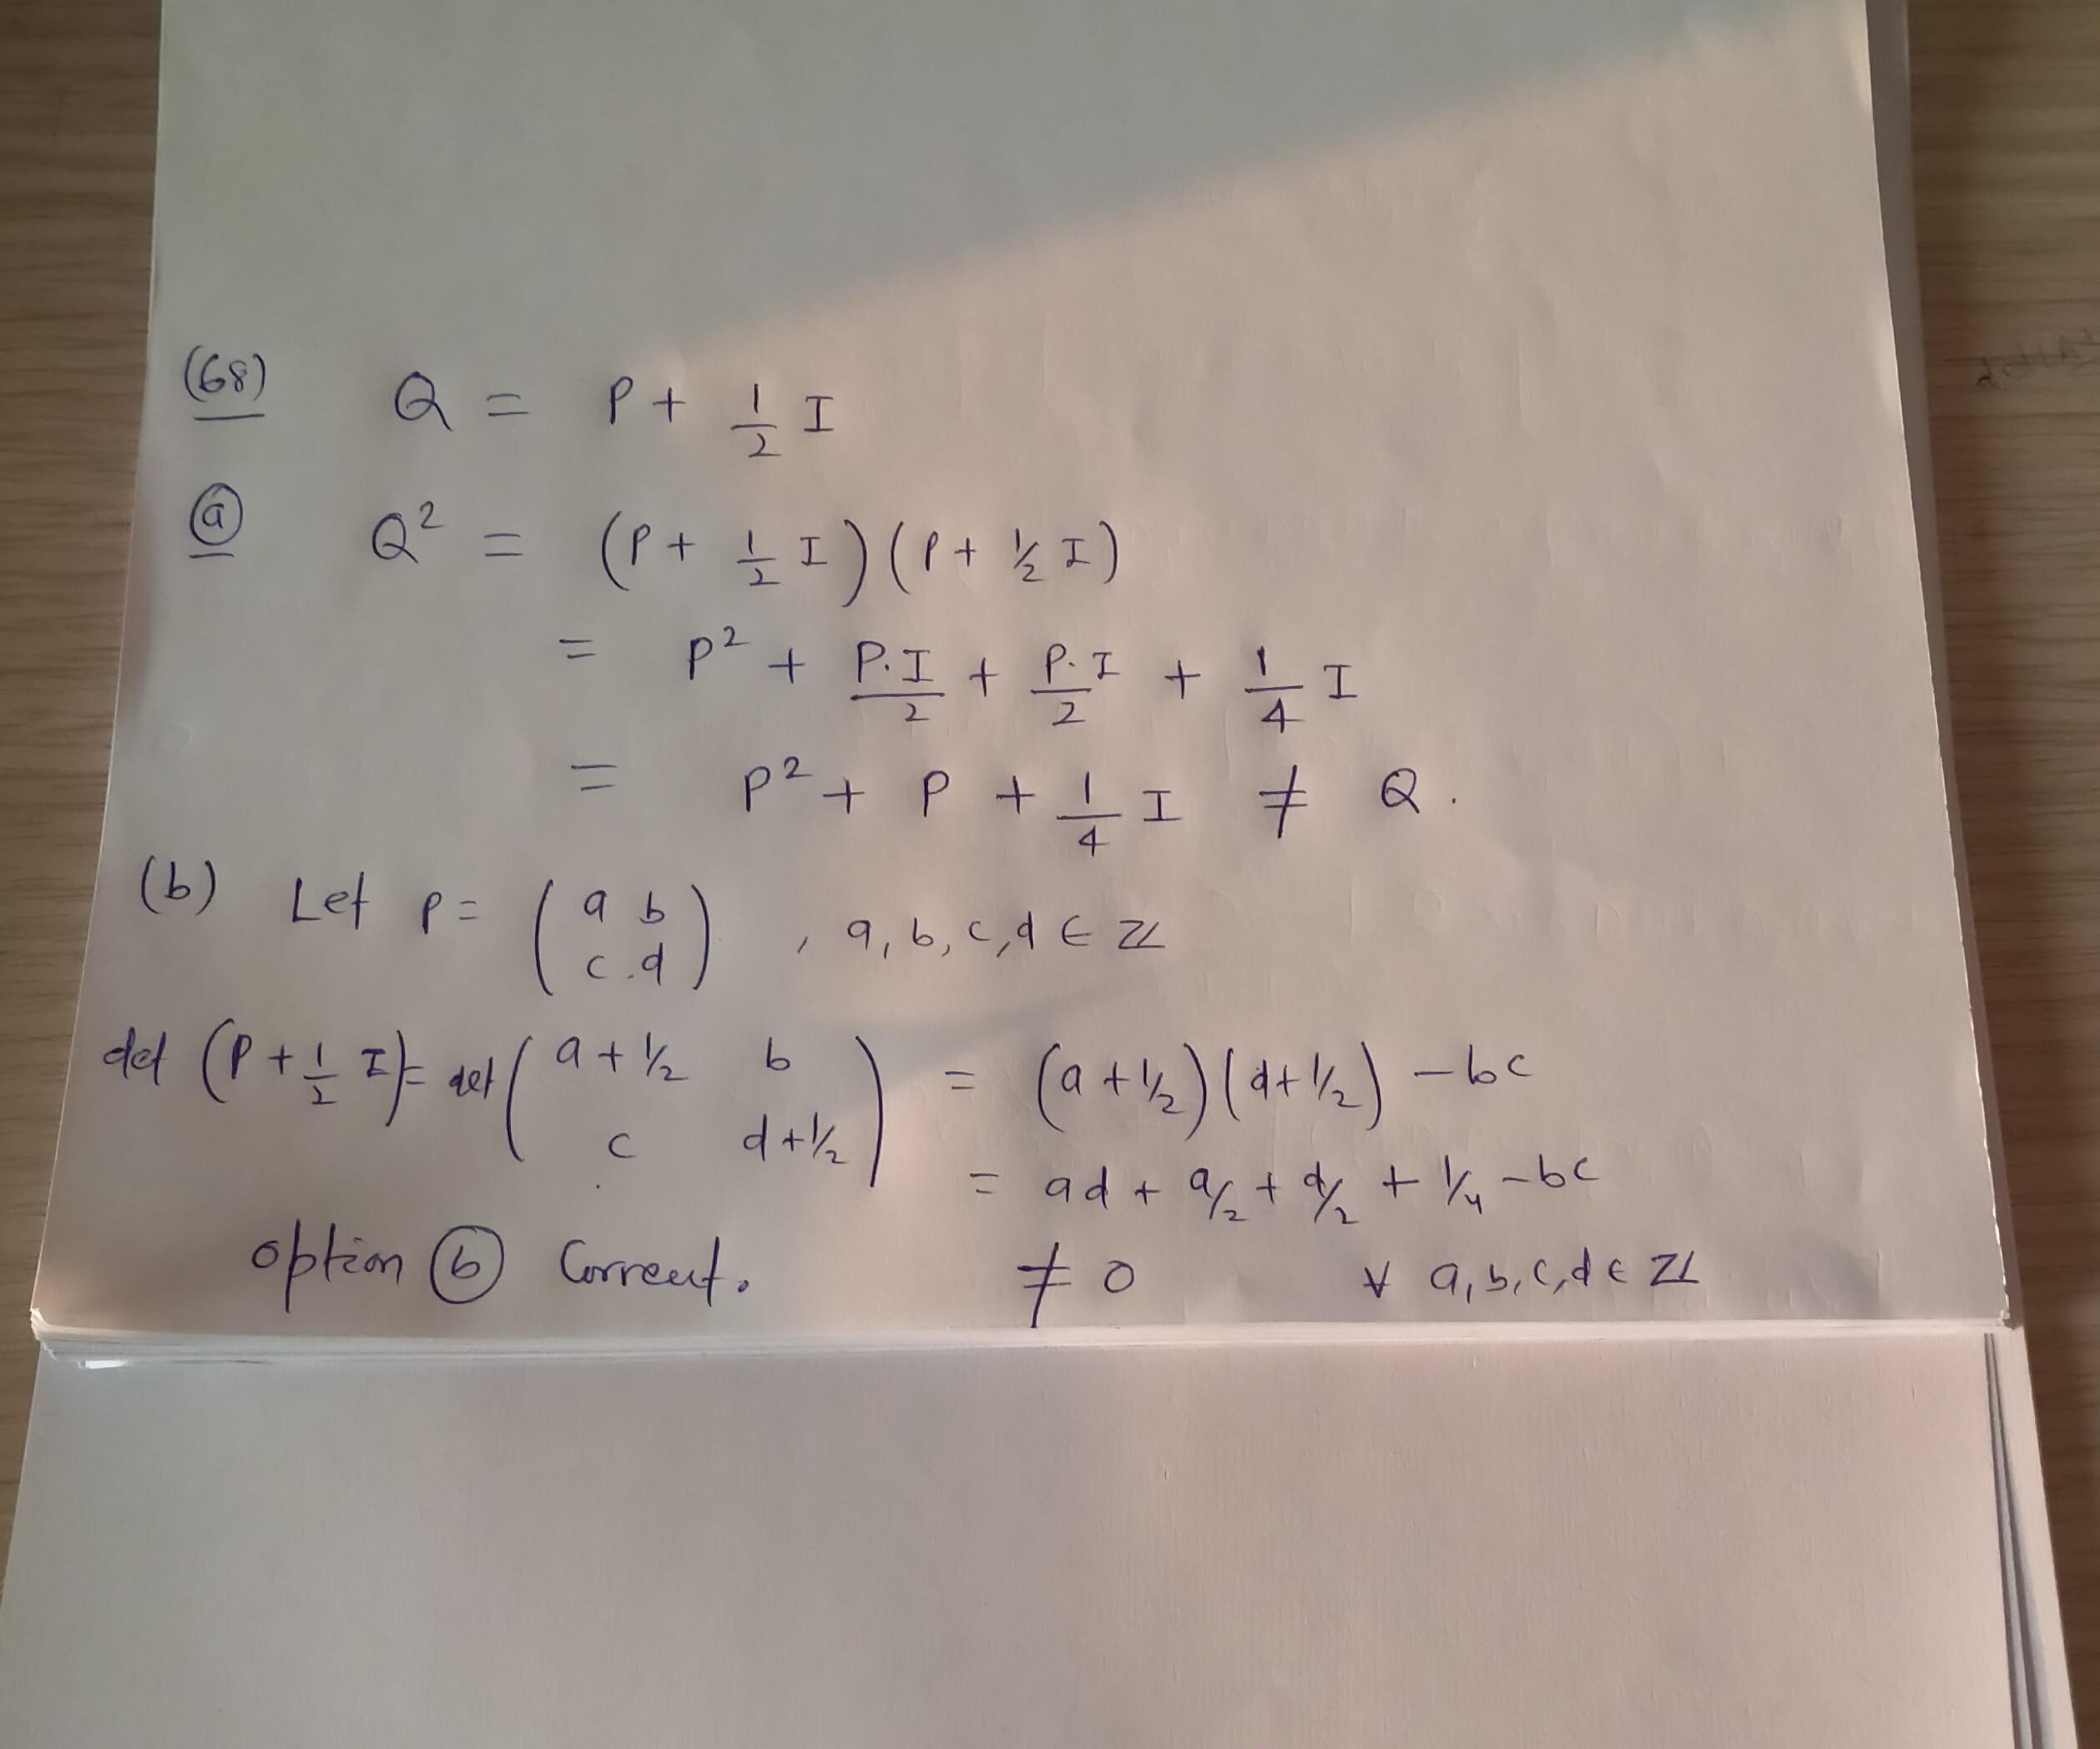 (68) Q = P + 1/2 I
(a) Q² = (P + 1/2 I) (P + 1/2 I)
= P² + P.I/2 + P.I/2 + 1/4 I
= P² + P + 1/4 I ≠ Q.
(b) Let P = (a b c d) , a, b, c, d ∈ ℤ
det (P + 1/2 I) = det (a + 1/2 b c d + 1/2) = (a + 1/2) (d + 1/2) - bc
= ad + a/2 + d/2 + 1/4 - bc
option (b) Correct. ≠ 0 ∀ a, b, c, d ∈ ℤ